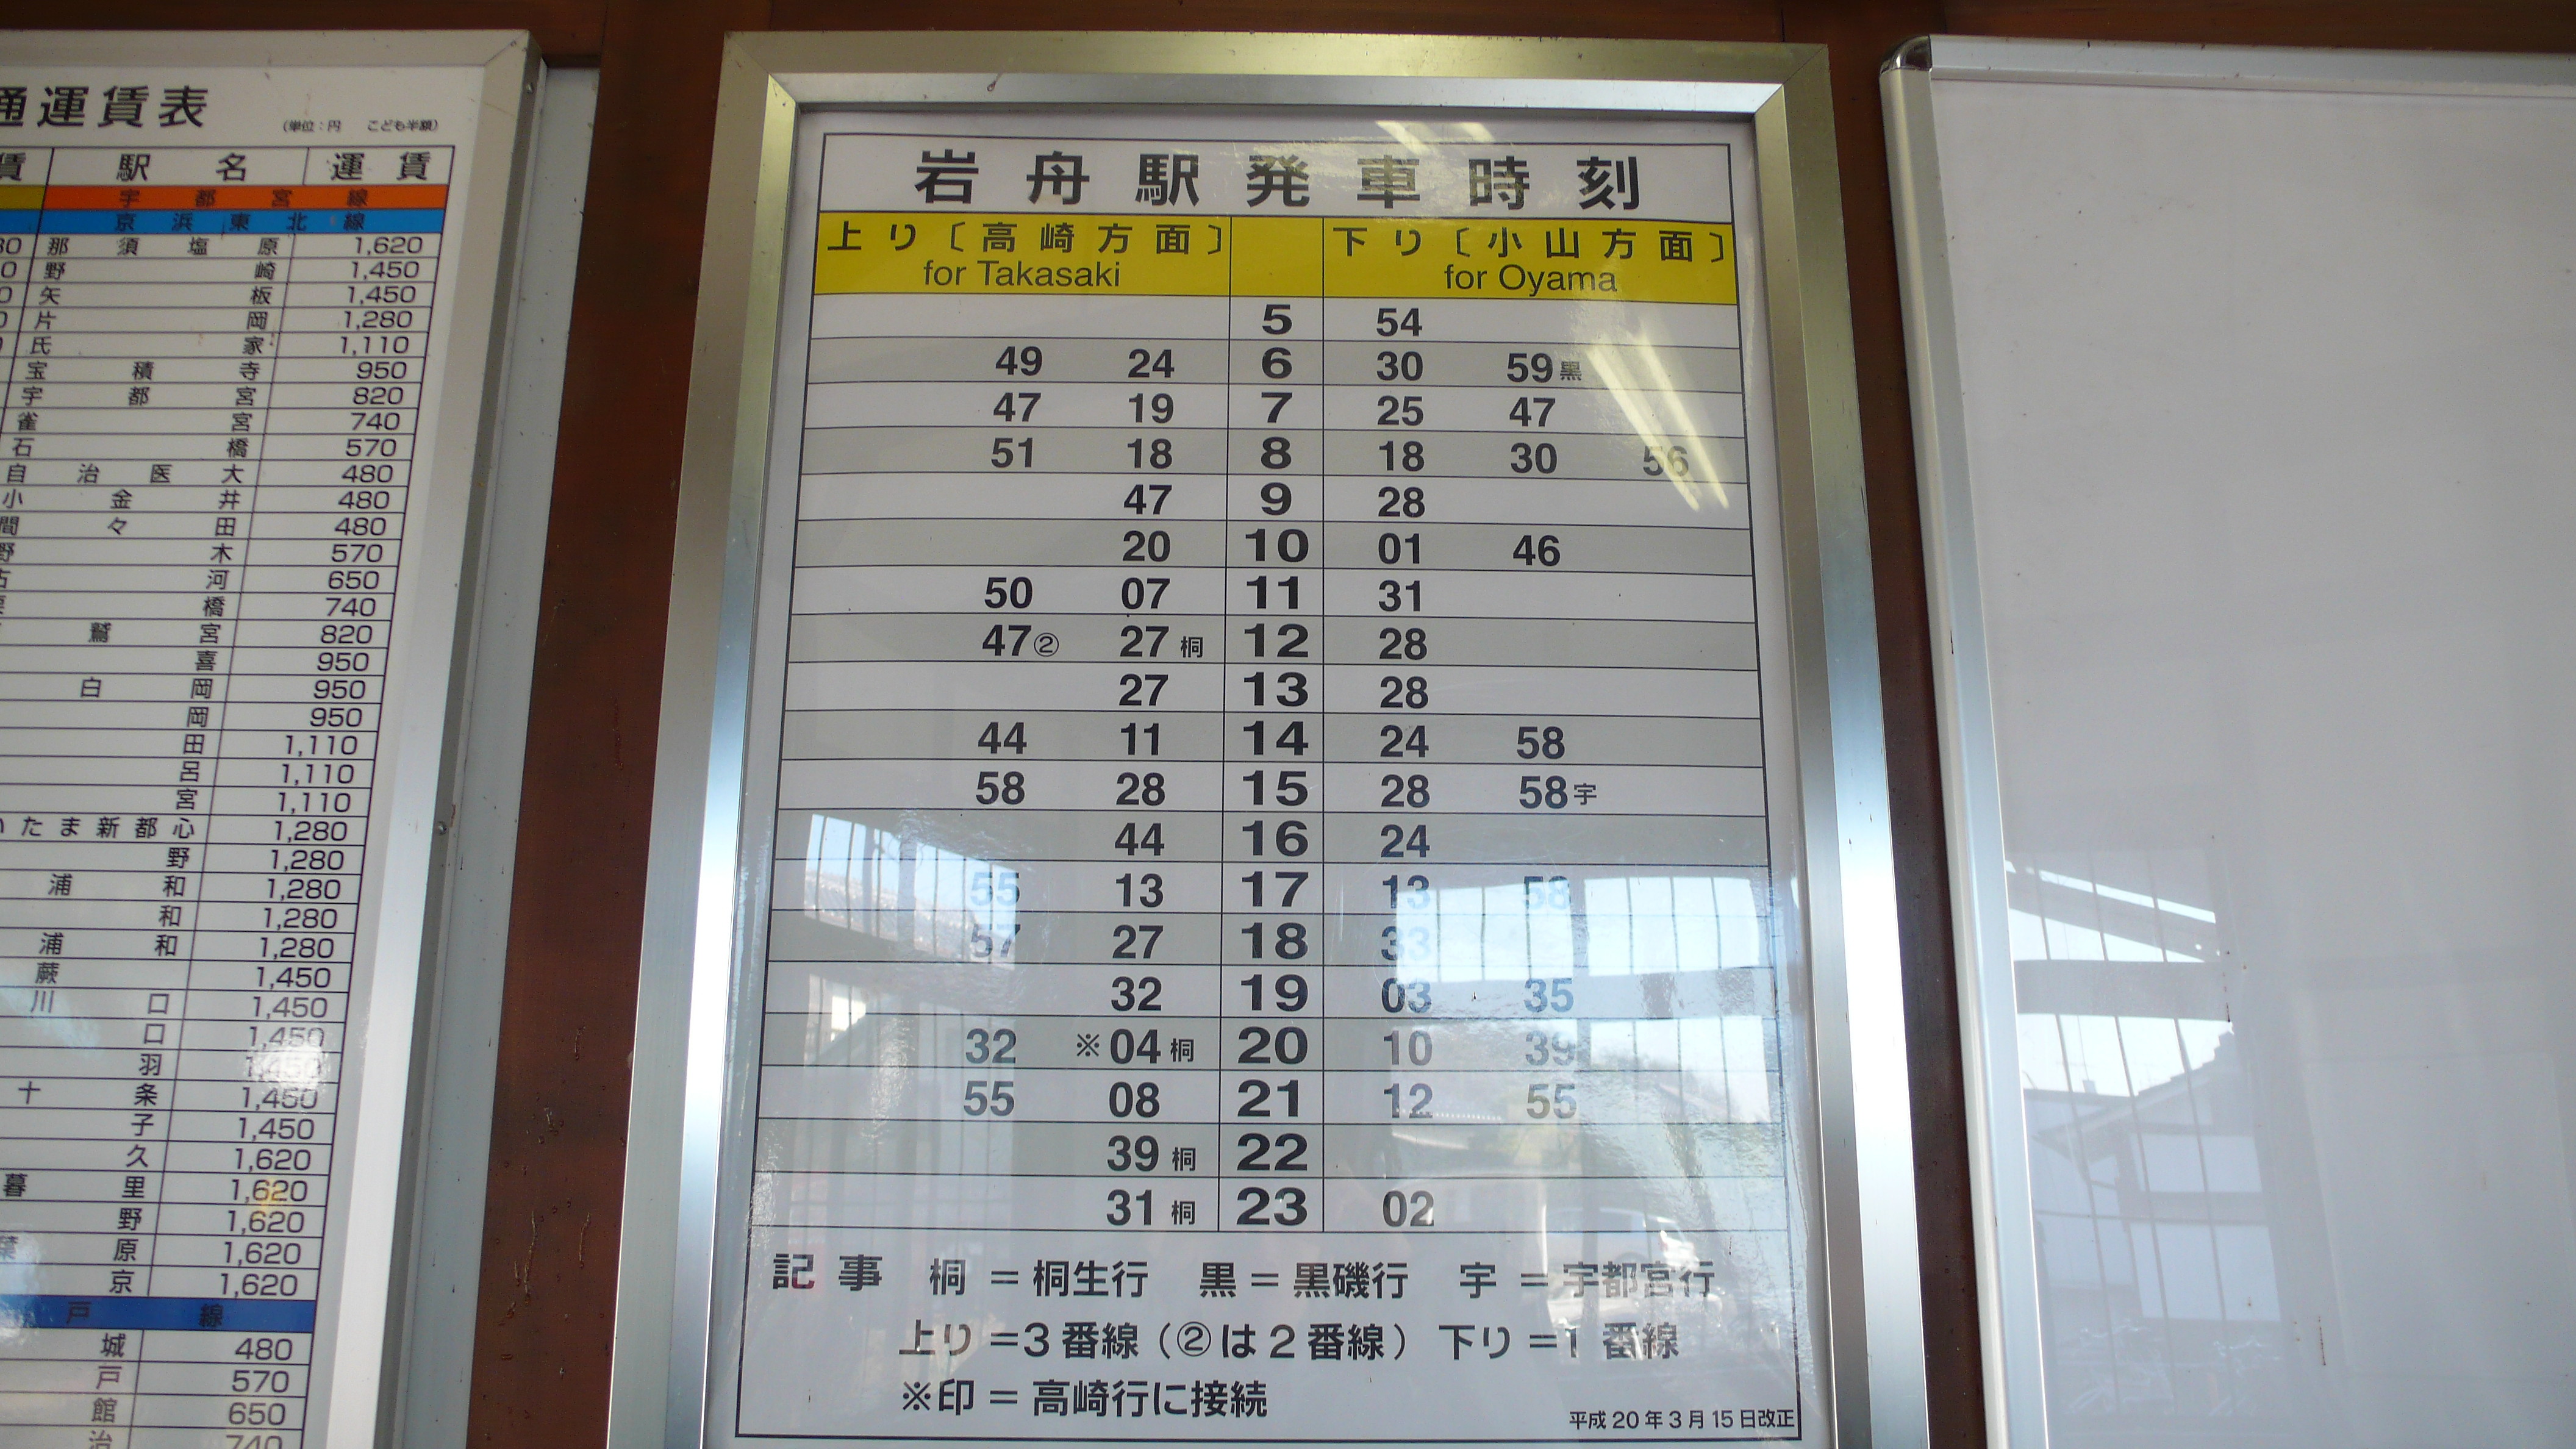 通運賃表
(単位：円 こども半額)
賃 駅名 運賃
宇都宮線
京浜東北線
那須塩原 1,620
野崎 1,450
矢板 1,450
片岡 1,280
氏家 1,110
宝積寺 950
宇都宮 820
雀宮 740
石橋 570
自治医大 480
小金井 480
間々田 480
野木 570
河 650
橋 740
鷲宮 820
喜 950
白岡 950
岡 950
田 1,110
呂 1,110
宮 1,110
いたま新都心 1,280
野 1,280
浦和 1,280
和 1,280
浦和 1,280
蕨 1,450
川口 1,450
口 1,450
羽 1,450
十条 1,450
子 1,450
久 1,620
暮里 1,620
野 1,620
葉原 1,620
京 1,620
戸線
城 480
戸 570
館 650
治 740
岩舟駅発車時刻
上り〔高崎方面〕 下り〔小山方面〕
for Takasaki for Oyama
5 54
49 24 6 30 59黒
47 19 7 25 47
51 18 8 18 30 56
47 9 28
20 10 01 46
50 07 11 31
47② 27桐 12 28
27 13 28
44 11 14 24 58
58 28 15 28 58宇
44 16 24
55 13 17 13 58
57 27 18 33
32 19 03 35
32 ※04桐 20 10 39
55 08 21 12 55
39桐 22
31桐 23 02
記事 桐＝桐生行 黒＝黒磯行 宇＝宇都宮行
上り＝3番線（②は2番線）下り＝1番線
※印＝高崎行に接続
平成20年3月15日改正